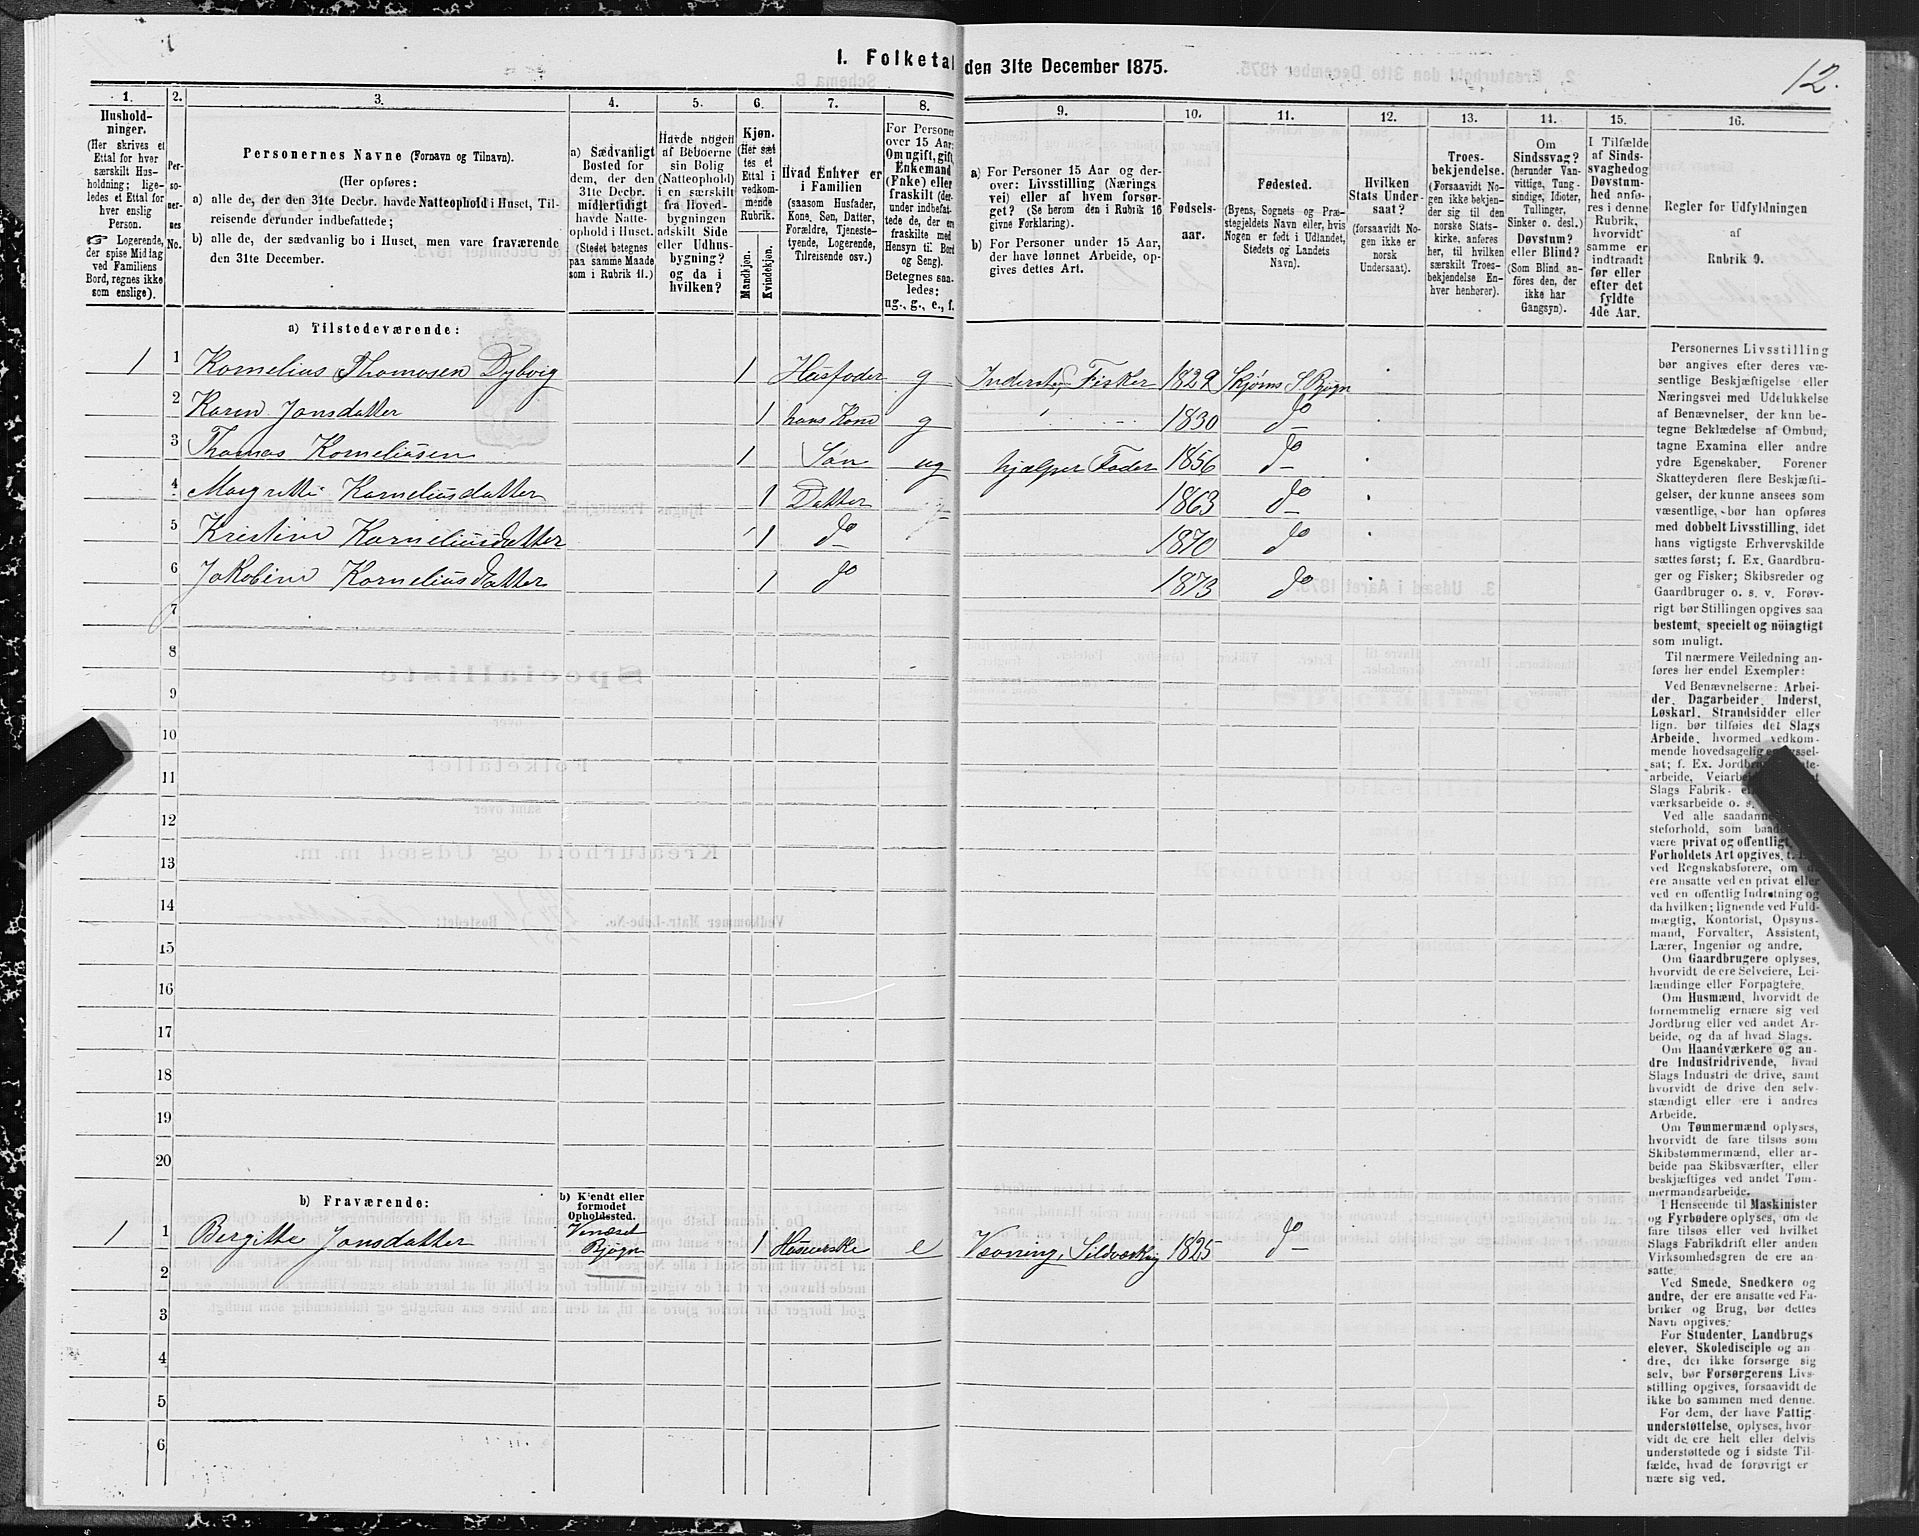 I. Folketal den 31te December 1875.
12.
1.
Husholdninger.
(Her skrives et
Ettal for hver
særskilt Husholdning; ligeledes et Ettal for
hver enslig
Person.
☞ Logerende,
der spise Middag
ved Familiens
Bord, regnes ikke
som enslige).
2.
Personernes
No.
3.
Personernes Navne (Fornavn og Tilnavn).
(Her opføres:
a) alle de, der den 31te Decbr. havde Natteophold i Huset, Tilreisende derunder indbefattede;
b) alle de, der sædvanlig bo i Huset, men vare fraværende
den 31te December.
4.
a) Sædvanligt
Bosted for
dem, der den
31te Decbr.
midlertidigt
havde Natteophold i Huset.
(Stedet betegnes
paa samme Maade
som i Rubrik 11.)
5.
Havde nogen
af Beboerne
sin Bolig
(Natteophold)
i en særskilt
fra Hovedbygningen
adskilt Side
eller Udhusbygning?
og da i
hvilken?
6.
Kjøn.
(Her sættes et
Ettal i
vedkommende
Rubrik.
Mandkjøn.
Kvindekjøn.
7.
Hvad Enhver er
i Familien
(saasom Husfader,
Kone, Søn, Datter,
Forældre, Tjenestetyende, Logerende,
Tilreisende osv.)
8.
For Personer
over 15 Aar:
Om ugift, gift,
Enkemand
(Enke) eller
fraskilt (derunder indbefattede de, der ere
fraskilte med
Hensyn til Bord
og Seng).
Betegnes saaledes:
ug., g., e., f.
9.
a) For Personer 15 Aar og derover: Livsstilling (Næringsvei) eller af hvem forsørget? (Se herom den i Rubrik 16
givne Forklaring).
b) For Personer under 15 Aar,
der have lønnet Arbeide, opgives dettes Art.
10.
Fødselsaar.
11.
Fødested.
(Byens, Sognets og Præstegjeldets Navn eller, hvis
Nogen er født i Udlandet,
Stedets og Landets
Navn).
12.
Hvilken
Stats Undersaat?
(forsaavidt Nogen ikke er
norsk
Undersaat).
13.
Troesbekjendelse.
(Forsaavidt Nogen ikke bekjender sig til den
norske Statskirke, anføres
her, til hvilken
særskilt Troesbekjendelse Enhver henhører).
14.
Om
Sindssvag?
(herunder Vanvittige, Tungsindige, Idioter,
Tullinger,
Sinker o. desl.)
Døvstum?
eller Blind?
(Som Blind anføres den, der
ikke har
Gangsyn).
15.
I Tilfælde
af Sindssvaghed og
Døvstumhed anføres i denne
Rubrik,
hvorvidt
samme er
indtraadt
før eller
efter det
fyldte
4de Aar.
16.
Regler for Udfyldningen
af
Rubrik 9.
a) Tilstedeværende:
1 1 Kornelius Thomasen Dybvig 1 Husfader g Inderst, Fisker 1829 Skjørns S Bjøgn
2 Karen Jonsdatter 1 hans Kone g 1830 do
3 Thomas Korneliusen 1 Søn ug hjælper Fader 1856 do
4 Margrethe Korneliusdatter 1 Datter 1863 do
5 Kristine Korneliusdatter 1 do 1870 do
6 Jakobine Korneliusdatter 1 do 1873 do
7
8
9
10
11
12
13
14
15
16
17
18
19
20
b) Fraværende:
b) Kjendt eller
formodet
Opholdssted.
1 1 Bergitte Jonsdatter Bjøgn 1 e 1825 do
2
3
4
5
6
Personernes Livsstilling
bør angives efter deres væsentlige Beskjæftigelse eller
Næringsvei med Udelukkelse
af Benævnelser, der kun betegne Beklædelse af Ombud,
tagne Examina eller andre
ydre Egenskaber. Forener
Skatteyderen flere Beskjæftigelser, der kunne ansees som
væsentlige, bør han opføres
med dobbelt Livsstilling, idet
hans vigtigste Erhvervskilde
sættes først; f. Ex. Gaardbruger og Fisker; Skibsreder og
Gaardbruger o. s. v. Forøvrigt bør Stillingen opgives saa
bestemt, specielt og nöiagtigt
som muligt.
Til nærmere Veiledning anføres her endel Exempler:
Ved Benævnelserne: Arbeider, Dagarbeider, Inderst,
Løskarl, Strandsidder eller
lign. bør tilføies det Slags
Arbeide, hvormed vedkommende hovedsagelig
sat; f. Ex.
arbeide,
Slags Fabrik-
værksarbeide o. s.
Ved alle saadanne
steforhold, som
være privat og offentligt,
Forholdets Art opgives,
ved Regnskabsførere, om
ere ansatte ved en privat eller
ved en offentlig Indretning og
da hvilken; lignende ved Fuldmægtig, Kontorist, Opsynsmand, Forvalter, Assistent,
Lærer, Ingeniør og andre.
Om Gaardbrugere oplyses,
hvorvidt de ere Selveiere, Leilændinge eller Forpagtere.
Om Husmænd, hvorvidt de
fornemmelig ernære sig ved
Jordbrug eller ved andet Arbeide, og da af hvad Slags.
Om Haandværkere og andre Industridrivende, hvad
Slags Industri de drive, samt
hvorvidt de drive den selvstændigt eller ere i andres
Arbeide.
Om Tømmermænd oplyses,
hvorvidt de fare tilsøs som
Skibstømmermænd, eller arbeide paa Skibsværfter, eller
beskjæftiges ved andet Tømmermandsarbeide.
I Henseende til Maskinister
og Fyrbødere oplyses, om de
fare tilsøs eller ved hvilket
Slags Fabrikdrift eller anden
Virksomhedsgren de ere ansatte.
Ved Smede, Snedkere og
andre, der ere ansatte ved Fabriker og Brug, bør dettes
Navn opgives.
For Studenter, Landbrugselever, Skoledisciple og andre, der ikke forsørge sig
selv, bør Forsørgerens Livsstilling opgives, forsaavidt de
ikke bo sammen med denne.
For dem, der have Fattigunderstøttelse, oplyses, hvorvidt de ere helt eller delvis
understøttede og i sidste Tilfælde, hvad de forøvrigt ernære sig ved.